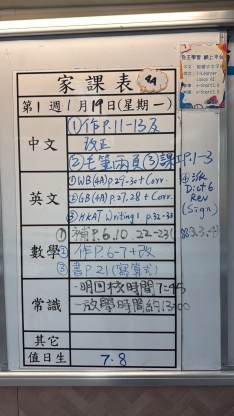 家課表
第1週1月19日(星期一)
中文
①作P.11-13及
改正
②毛筆兩頁③課P.1-3
英文
①WB(4A)p.29-30+Corr.
②GB(4A)p.27,28+Corr.
③HKAT Writing1 p.32-33
④派
Dict6
Rev
(Sign)
數學
①補P.6,10,22-23
②作P.6-7+改
③書P.21(寫算式)
常識
-明回校時間7:45
-放學時間約13:00
其它
值日生
7.8
自主學習 網上平台